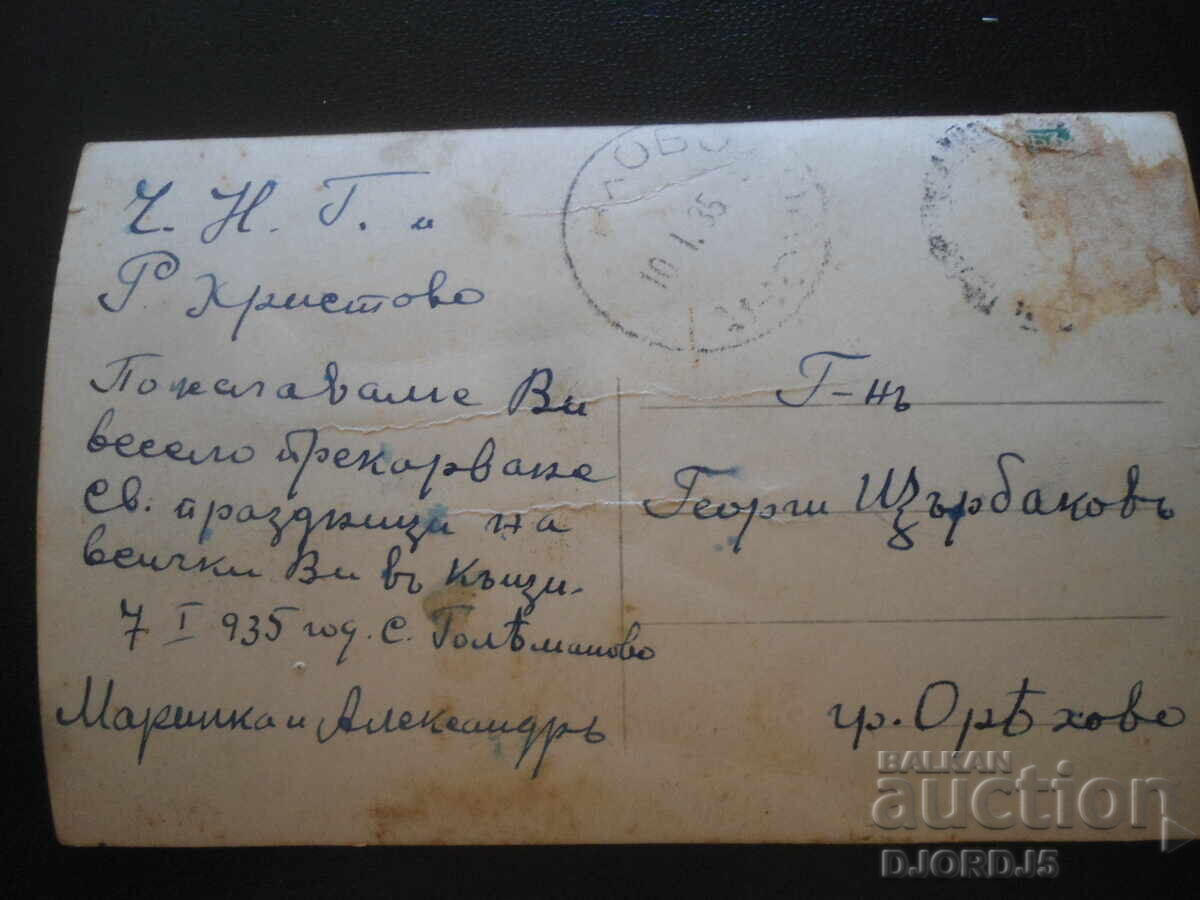 Ч. Н. Г. и
Р. Христово
Пожелаваме Ви
весело прекарване
Св. праздници на
всички Ви въ къщи.
7 I 935 год. с. Голѣманово
Маринка и Александръ
10.I.35
Г-нъ
Георги Щърбаковъ
гр. Орѣхово
BALKAN
auction
DJORDJ5